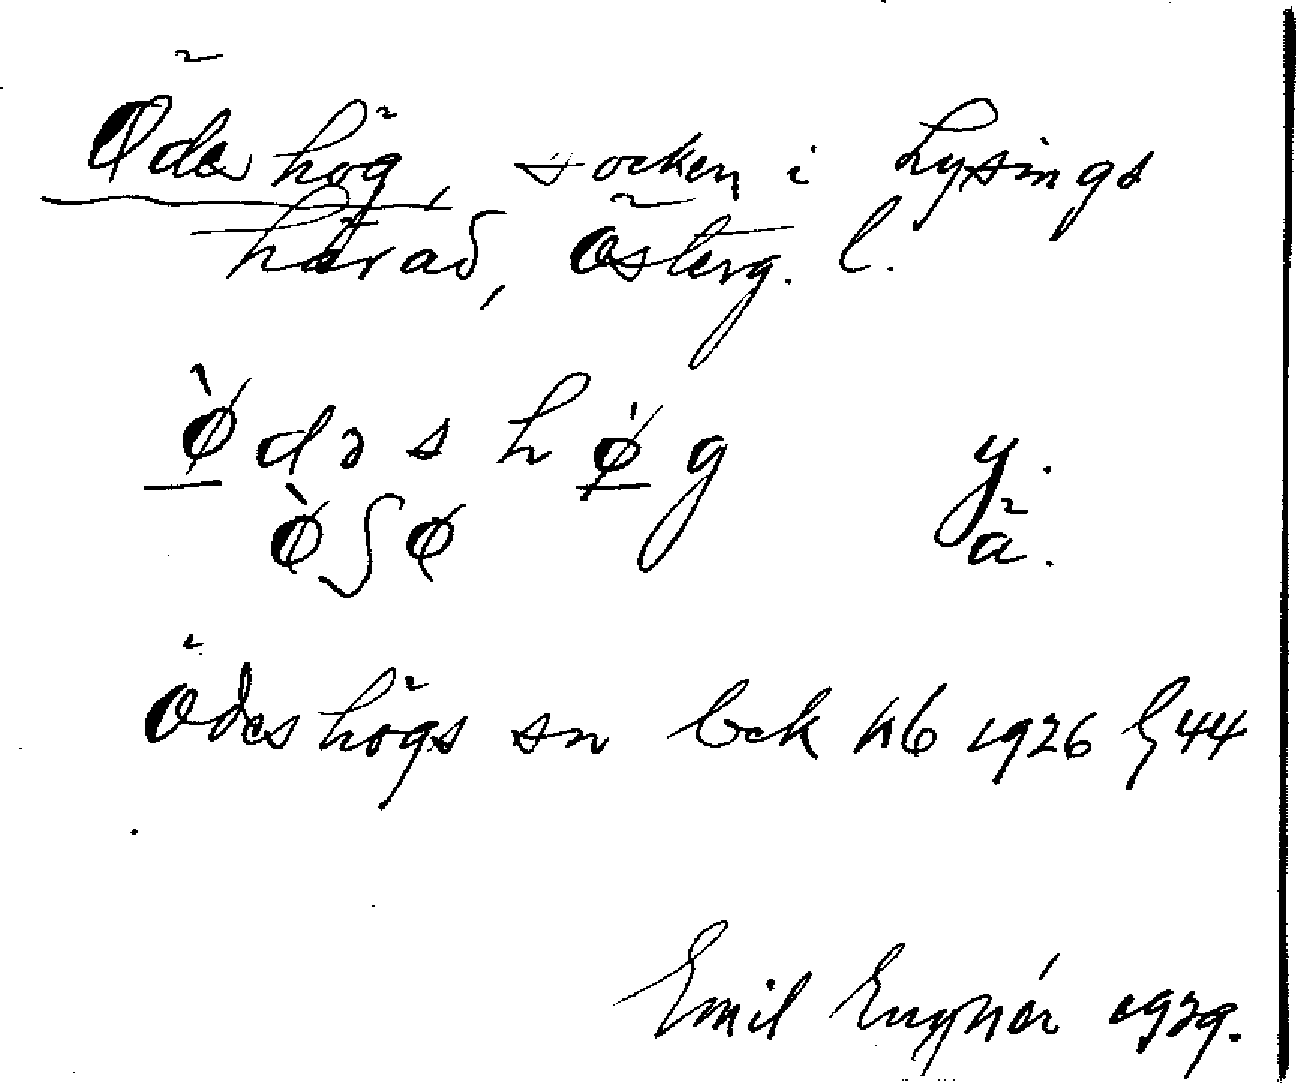 Ödeshög, socken i Lysings
härad, Österg. l.
ø̀dəshø̀g y.
ø̀ʃø ä.
Ödeshögs sn bek hb 1926 § 44
Emil 1929.